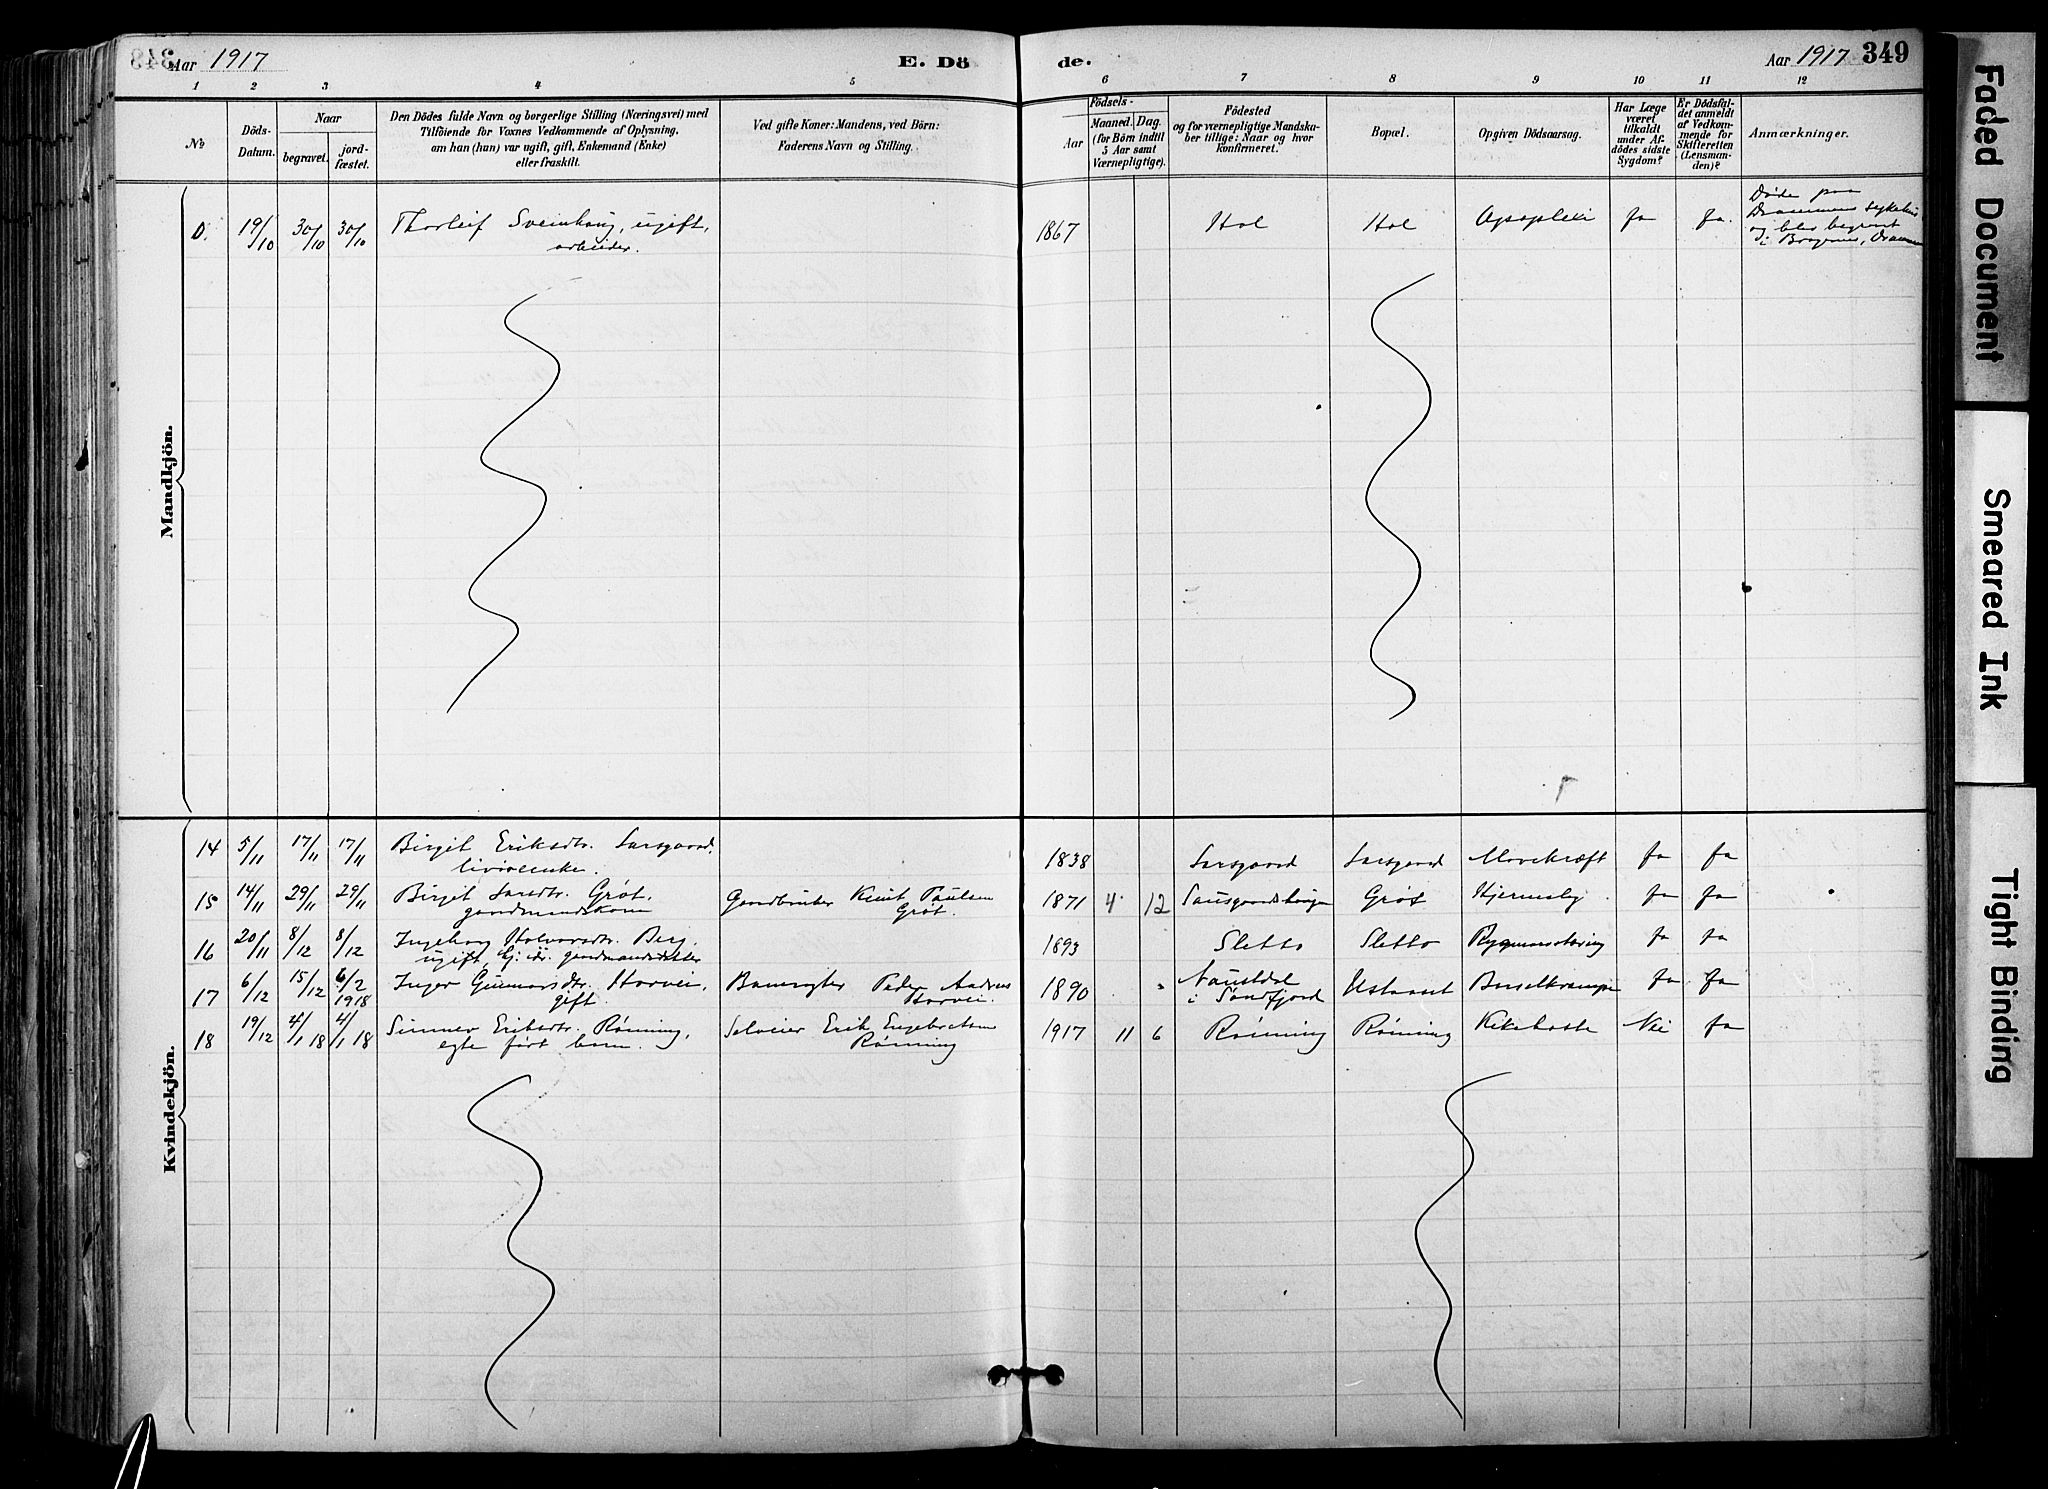 349
Aar 1917
E. Dö
de.
Aar 1917 349
1 2 3 4 5 6 7 8 9 10 11 12
№
Döds-
Datum.
Naar
begravet.
jord-
fæstet.
Den Dödes fulde Navn og borgerlige Stilling (Næringsvei) med
Tilföiende for Voxnes Vedkommende af Oplysning,
om han (hun) var ugift, gift, Enkemand (Enke)
eller fraskilt.
Ved gifte Koner: Mandens, ved Börn:
Faderens Navn og Stilling.
Födsels-
Aar
Maaned. Dag.
(for Börn indtil
5 Aar samt
Værnepligtige).
Födested
og for værnepligtige Mandska-
ber tillige: Naar og hvor
konfirmeret.
Bopæl.
Opgiven Dödsaarsag.
Har Læge
været
tilkaldt
under Af-
dödes sidste
Sygdom?
Er Dödsfal-
det anmeldt
af Vedkom-
mende for
Skifteretten
(Lensman-
den)?
Anmærkninger.
Mandkjön.
D. 19/10 30/10 30/10 Thorleif Sveinhaug, ugift,
arbeider.
1867 Hol Hol Apopleksi ja ja.
Døde paa
Drammens sykehus
og blev begravet
i Bragernes, Drammen
Kvindekjön.
14 5/11 17/11 17/11 Birgit Eriksdtr. Larsgaard,
1838 Larsgaard Larsgaard ja ja
15 14/11 29/11 29/11 Birgit Larsdtr. Grøt,
gaardmandskone
Gaardbruker Knut Paulsen
Grøt.
1871 4 12 Grøt ja ja
16 20/11 8/12 8/12 Ingeborg Halvorsdtr. Berg,
ugift,
1893 Sletto Sletto ja ja
17 6/12 15/12 6/2 1918 Inger Gunnarsdtr. Storvei,
gift.
Banevogter Peder Andreas
Storvei.
1890 Naustdal
i Søndfjord Ustaoset Barselkrampe ja ja
18 19/12 4/1 18 4/1 18 Sinnev Eriksdtr. Rønning,
egte født barn.
Selveier Erik Engebretsen
Rønning
1917 11 6 Rønning Rønning Kikhoste Nei ja
Faded Document
Smeared Ink
Tight Binding